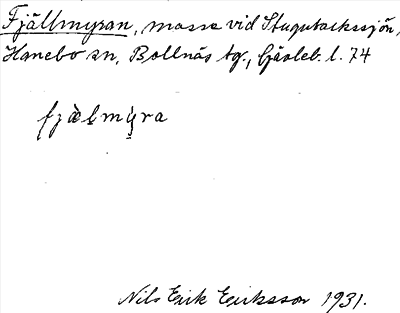 Fjällmyran, mosse vid Stugubackssjön,
Hanebo sn, Bollnäs tg., Gävleb. l. 74
fjælmyra
Nils Erik Eriksson 1931.